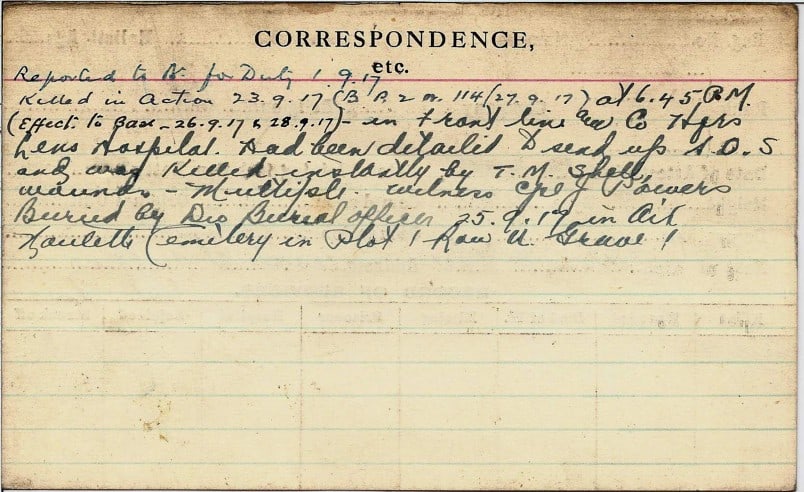 CORRESPONDENCE,
etc.
Reported to Bn for Duty 1.9.17
Killed in Action 23.9.17 (B R 2 M. 114 (27.9.17) at 6.45 P.M.
(Effects to Base - 26.9.17 & 28.9.17) - in Front line Co Hqrs
Lens Hospital. Had been detailed to send up S.O.S
and was Killed instantly by T.M. Shell
wounds - Multiple. witness Cpl J Powers
Buried by Div Burial officer 25.9.17 in Aix
Noulette Cemetery in Plot 1 Row U. Grave 1